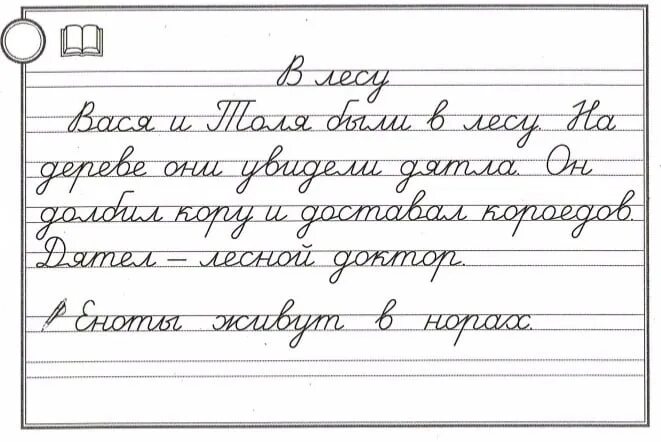 В лесу
Вася и Толя были в лесу. На
дереве они увидели дятла. Он
долбил кору и доставал короедов.
Дятел – лесной доктор.
Еноты живут в норах.